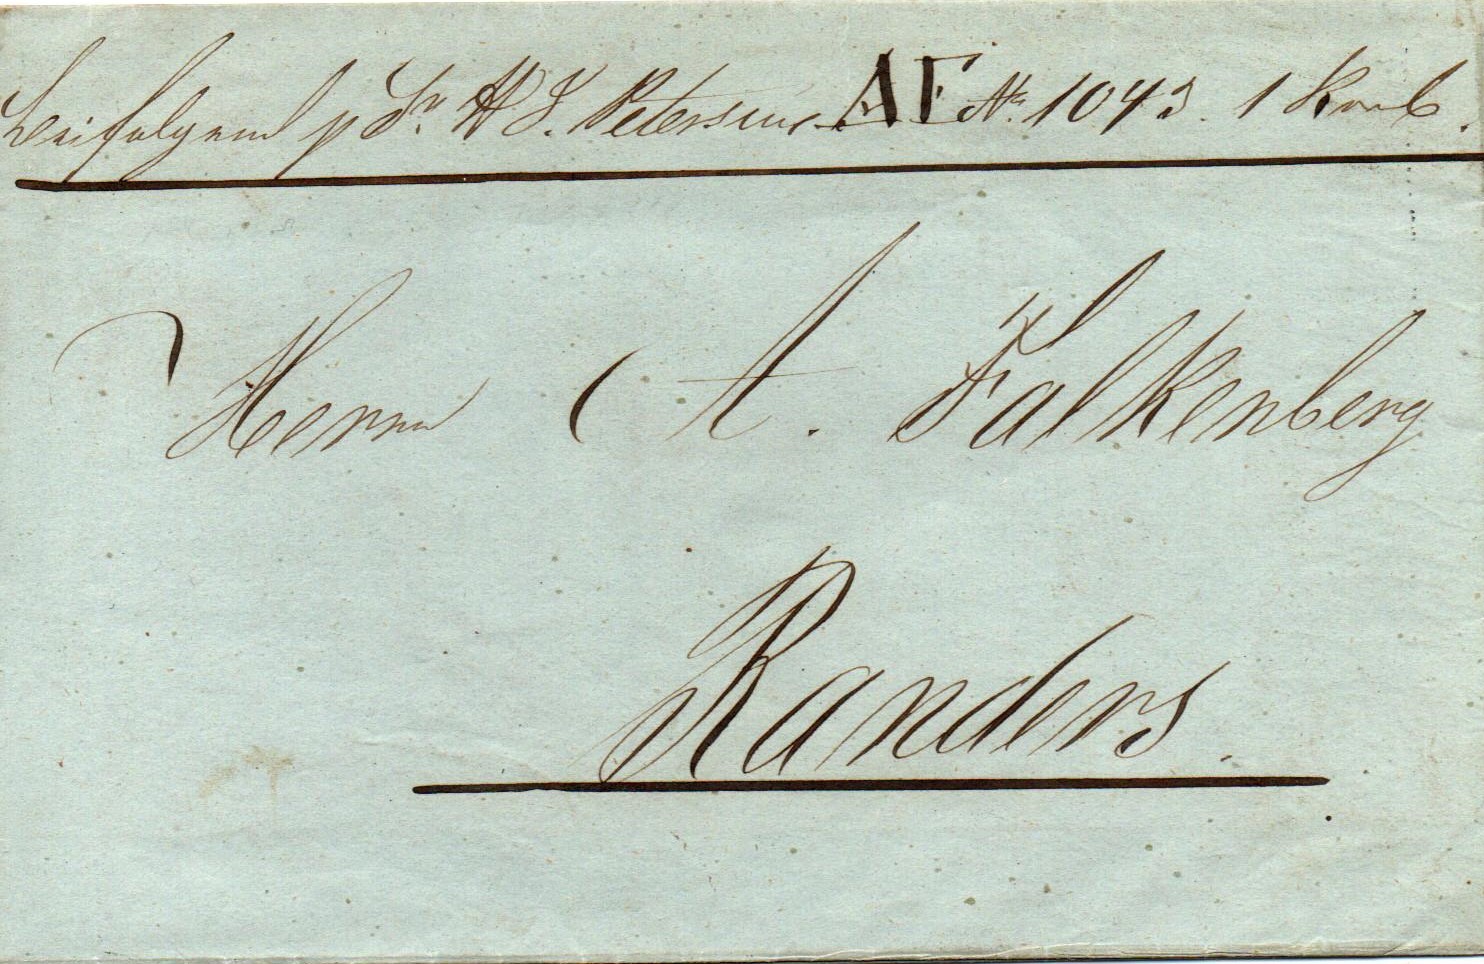 beifolgend p Sr. H. J. Petersen AF No. 1043. 1 Korb.
Herrn A. Falkenberg
Randers.